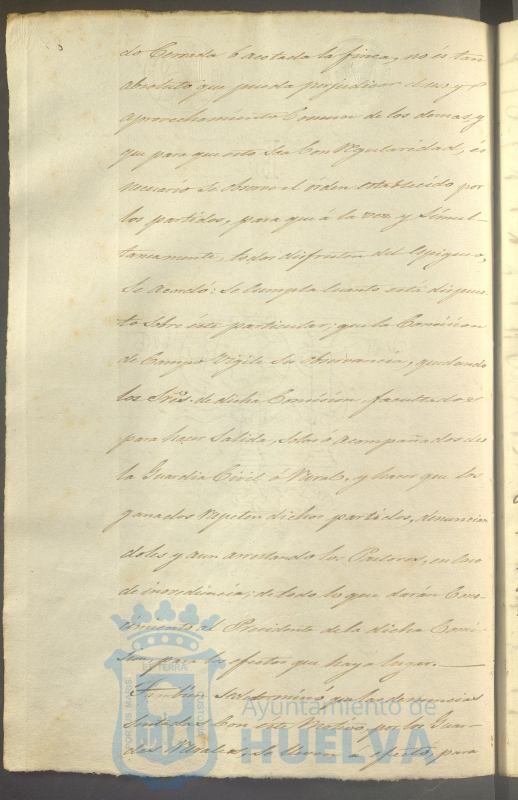 do Cerrada ó acotada la finca, no és tan
absoluto que pueda perjudicar el uso y
aprovechamiento Comun de los demas, y
que para que esto sea con regularidad, és
necesario se observe el órden establecido por
los partidos, para que á la vez y simul-
taneamente, todos disfruten del espigueo,
Se acordó: Se cumpla cuanto está dispues
to sobre éste particular; que la Comision
de Campo vigile su observancia, quedando
los Sres. de dicha Comision, facultados
para hacer salida, solos ó acompañados de
la Guardia Civil ó Rural, y hacer que los
ganados respeten dichos partidos, denuncian
doles y aun arrestando los Pastores, en caso
de inovediencia; de todo lo que darán Cono-
cimiento al Presidente de la dicha Comi-
sion, para los efectos que haya lugar.
Tambien se determinó que las denuncias
sentadas con éste motivo, por los Guar-
das Rurales, se lleven á efecto, para
PORTUS MARIS
ET TERRÆ
CUSTODIA
Ayuntamiento de
HUELVA